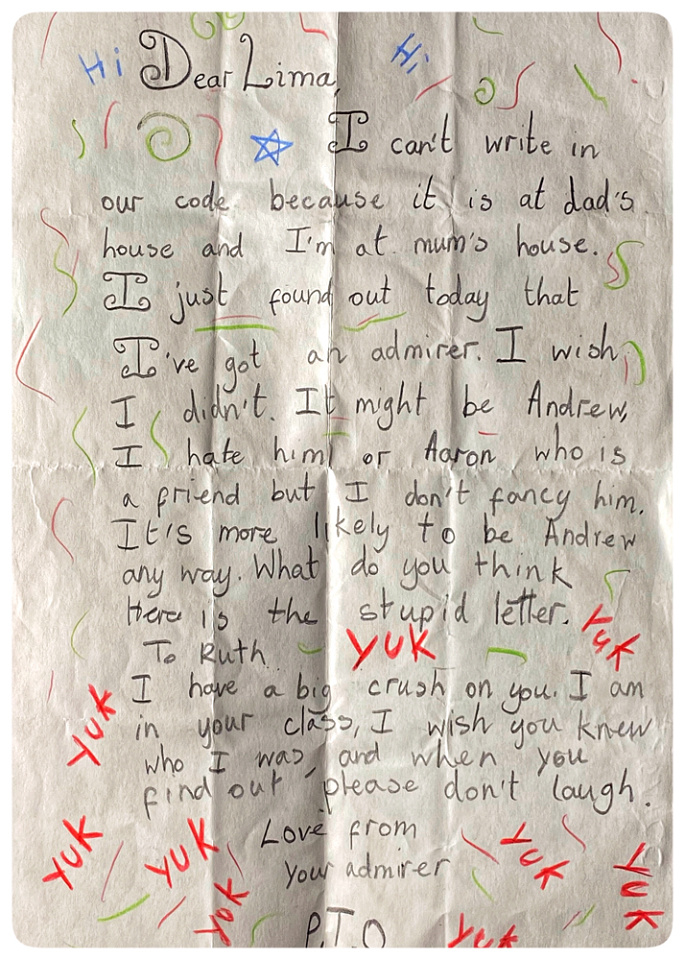 Hi Dear Lima, Hi
I can't write in
our code because it is at dad's
house and I'm at mum's house.
I just found out today that
I've got an admirer. I wish
I didn't. It might be Andrew,
I hate him or Aaron who is
a friend but I don't fancy him.
It's more likely to be Andrew
any way. What do you think
Here is the stupid letter. YUK
To Ruth YUK
I have a big crush on you. I am
YUK in your class, I wish you knew
who I was, and when you
find out please don't laugh.
YUK YUK Love from YUK
your admirer YUK
YUK P.T.O YUK